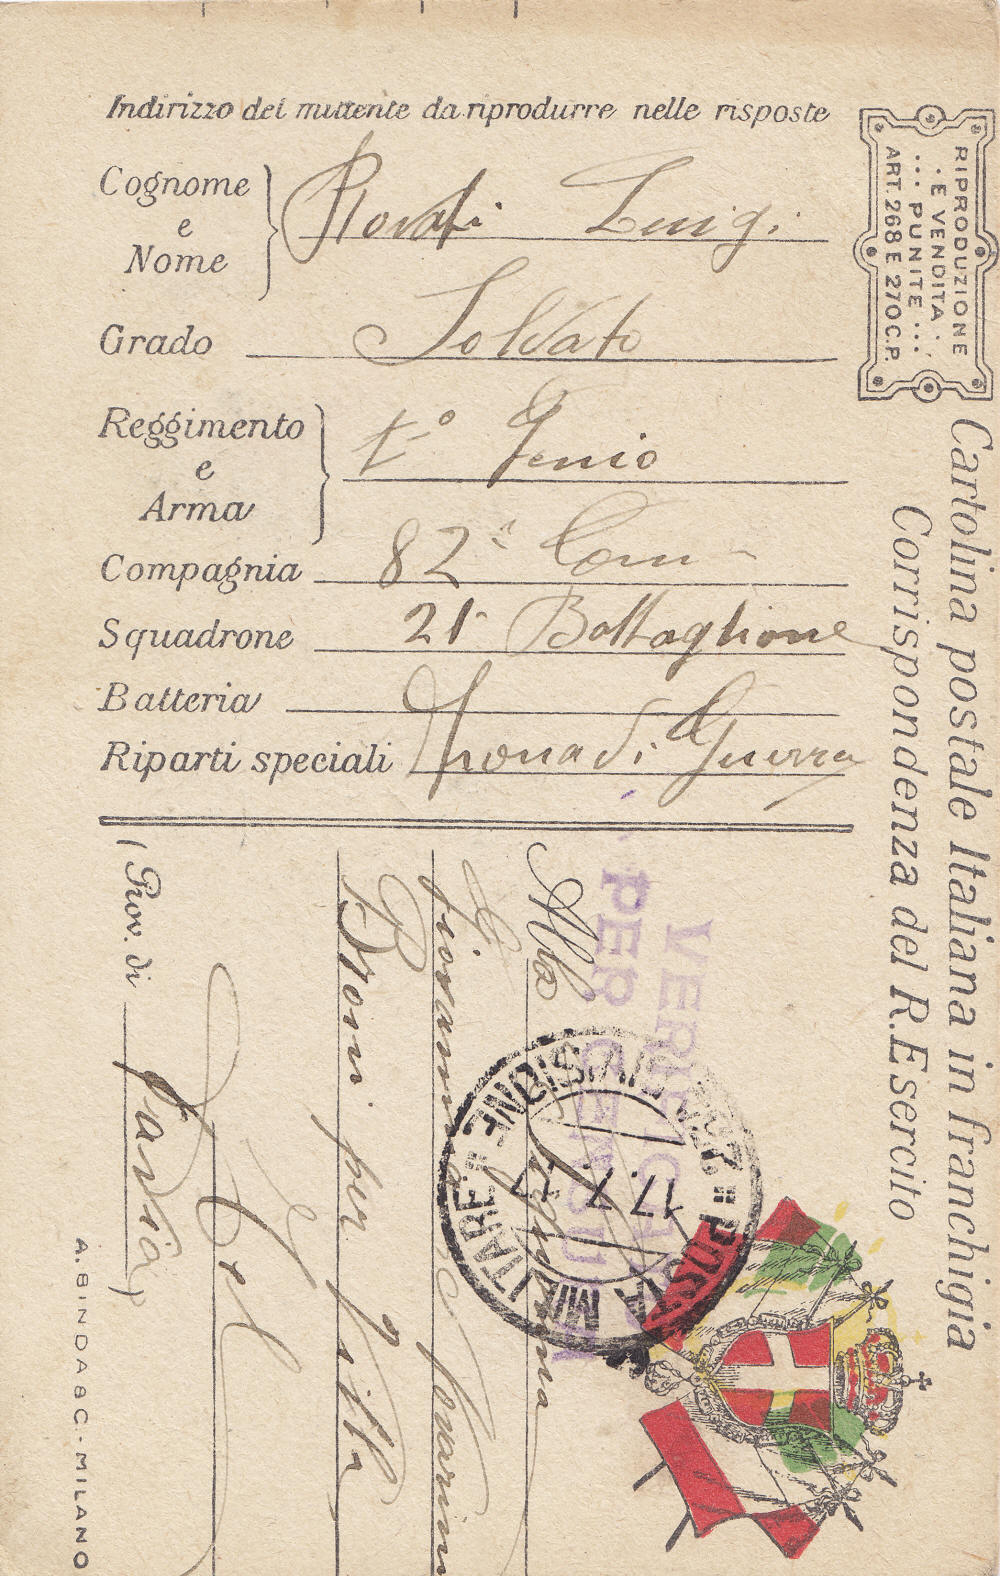 Indirizzo del mittente da riprodurre nelle risposte
Cognome
e
Nome
Luigi
Grado Soldato
Reggimento
e
Arma
1º Genio
Compagnia 82ª Com
Squadrone 21 Battaglione
Batteria
Riparti speciali Zona di Guerra
RIPRODUZIONE
· E VENDITA ·
··· PUNITE ···
ART. 268 E 270 C.P.
Cartolina postale Italiana in franchigia
Corrispondenza del R. Esercito
VERIFICATA
PER CENSURA
POSTA MILITARE
DIVISIONE
17.7
Alla Signorina
Giovannina
Broni per
(Prov. di Pavia)
A. BINDA & C. - MILANO